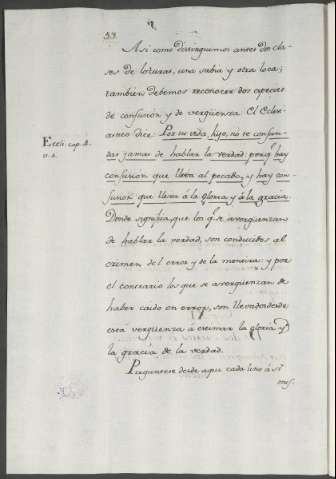 53.
Asi como distinguimos antes dos cla-
ses de locuras, una sabia y otra loca;
tambien debemos reconocer dos especies
de confusion y de verguenza. El Ecles-
iastico dice Por tu vida, hijo, no te confun-
Eccli. cap. 4.
das jamas de hablar la verdad: porq.e hay
v. 2.
confusion que lleva al pecado, y hay con-
fusion que lleva á la gloria y á la gracia.
Donde significa, que los q.e se averguenzan
de hablar la verdad, son conducidos al
crimen del error y de la mentira: y por
el contrario los que se averguenzan de
haber caido en error, son llevados desde
esta verguenza á estimar la gloria y
la gracia de la verdad.
Preguntese desde aqui cada uno á sí
mis-